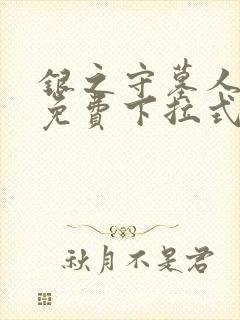 银之守墓人
免費下拉式
秋月不是君